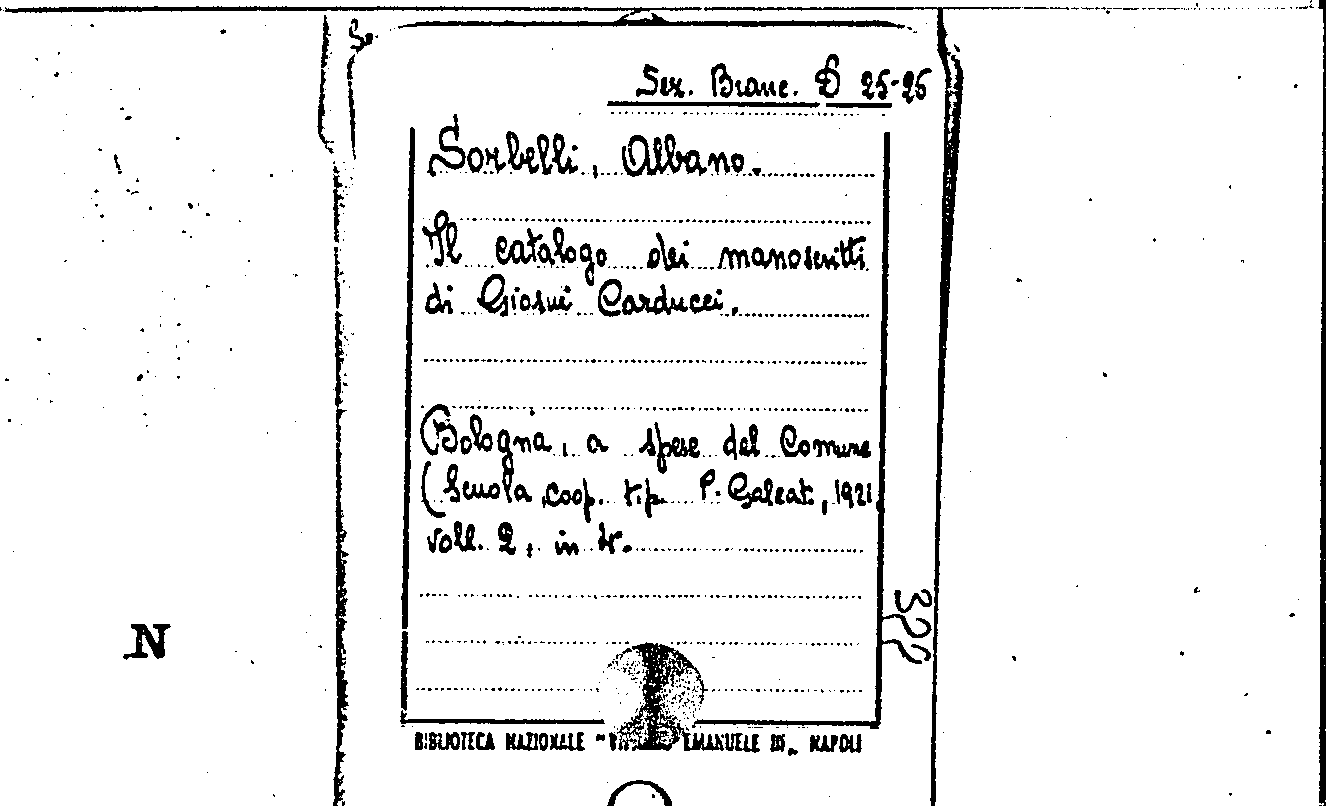 So
Sez. Branc. D 25-26
Sorbelli, Albano.
Il catalogo dei manoscritti
di Giosuè Carducci.
Bologna, a spese del Comune
(Scuola coop. tip. P. Galeati, 1921
voll. 2, in 4.
N
BIBLIOTECA NAZIONALE "VITTORIO EMANUELE III" NAPOLI